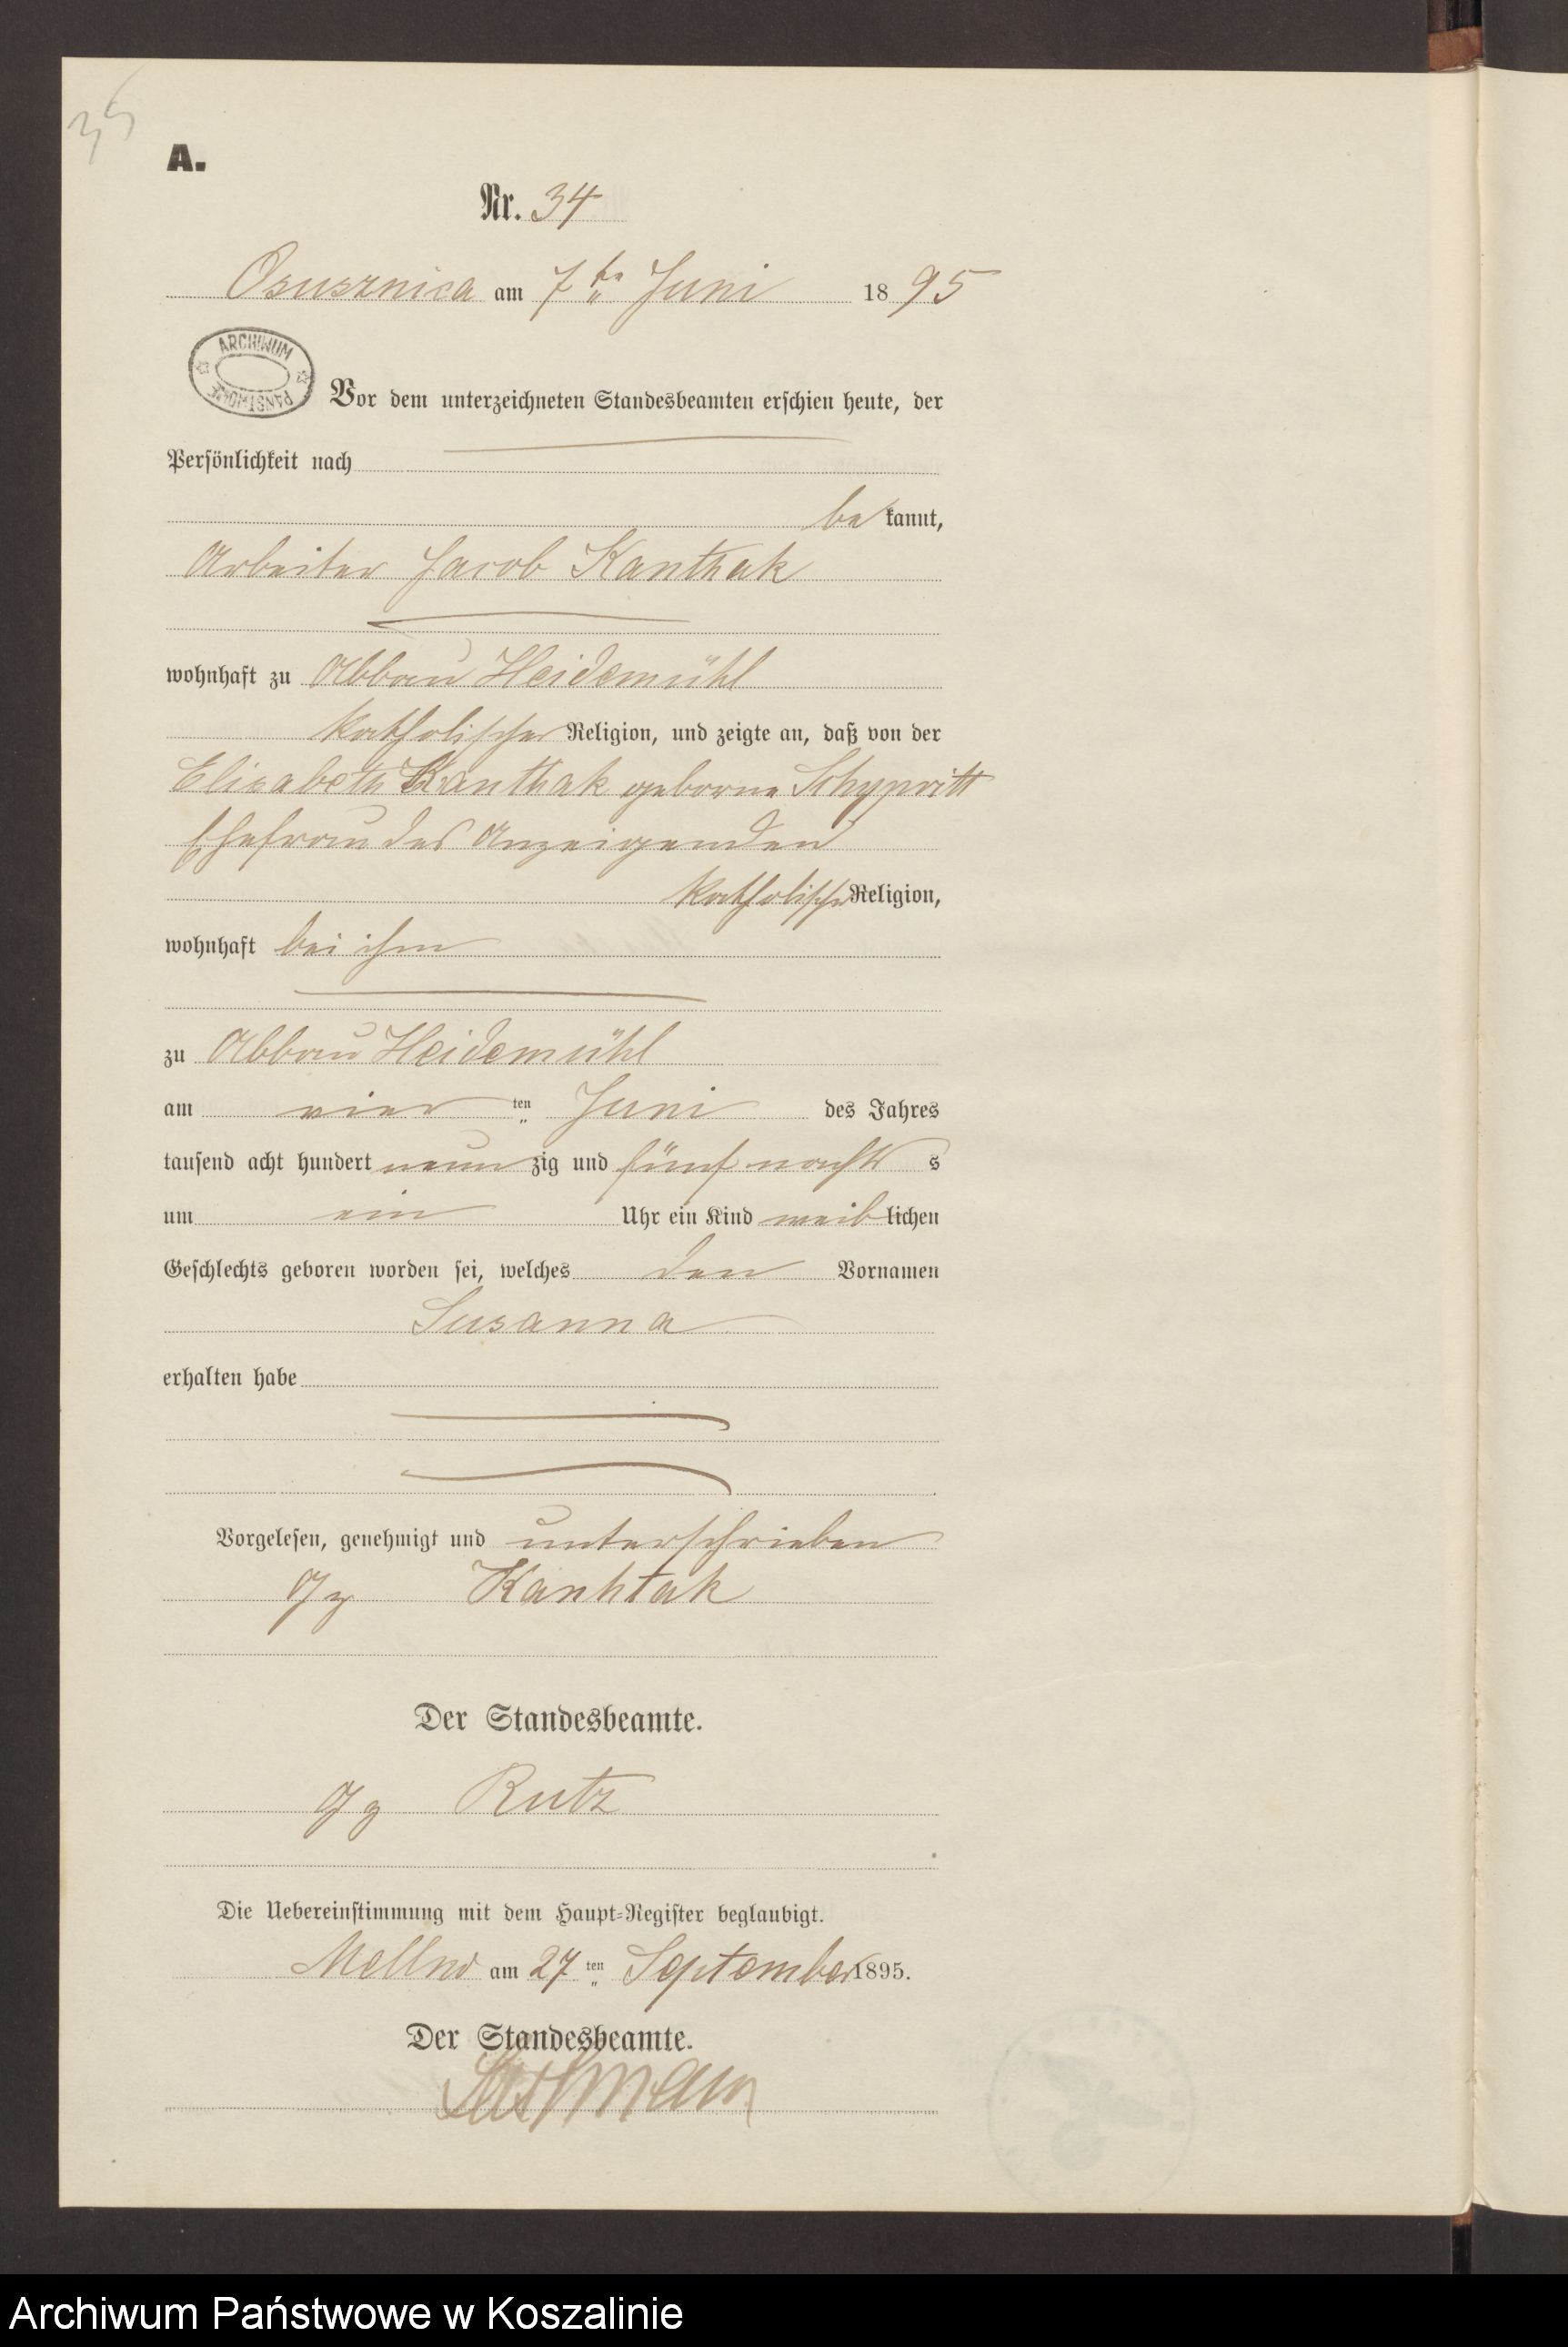 35
A.
Nr. 34
Osusznica am 7ten Juni 1895
ARCHIWUM
PAŃSTWOWE
Vor dem unterzeichneten Standesbeamten erschien heute, der
Persönlichkeit nach
bekannt,
Arbeiter Jacob Kanthak
wohnhaft zu Abbau Heidemühl
katholischer Religion, und zeigte an, daß von der
Elisabeth Kanthak geborne
Ehefrau des Anzeigenden
katholischer Religion,
wohnhaft bei ihm
zu Abbau Heidemühl
am vier ten Juni des Jahres
tausend acht hundert neunzig und fünf nachts
um ein Uhr ein Kind weiblichen
Geschlechts geboren worden sei, welches den Vornamen
Susanna
erhalten habe
Vorgelesen, genehmigt und unterschrieben
gz Kanhtak
Der Standesbeamte.
gz Rutz
Die Uebereinstimmung mit dem Haupt-Register beglaubigt.
am 27 ten September 1895.
Der Standesbeamte.
Archiwum Państwowe w Koszalinie